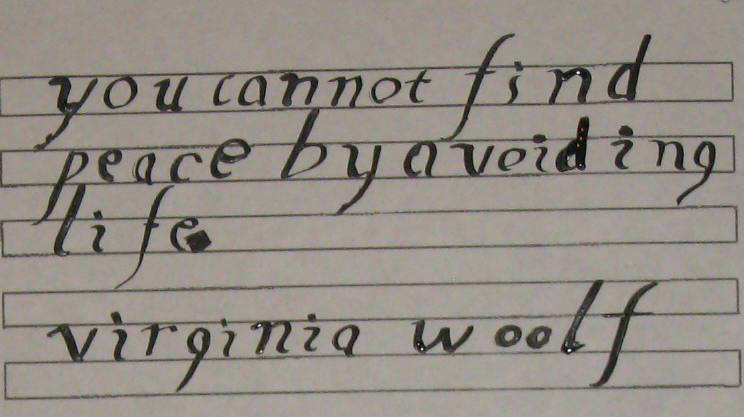 you cannot find
peace by avoiding
life.
virginia woolf